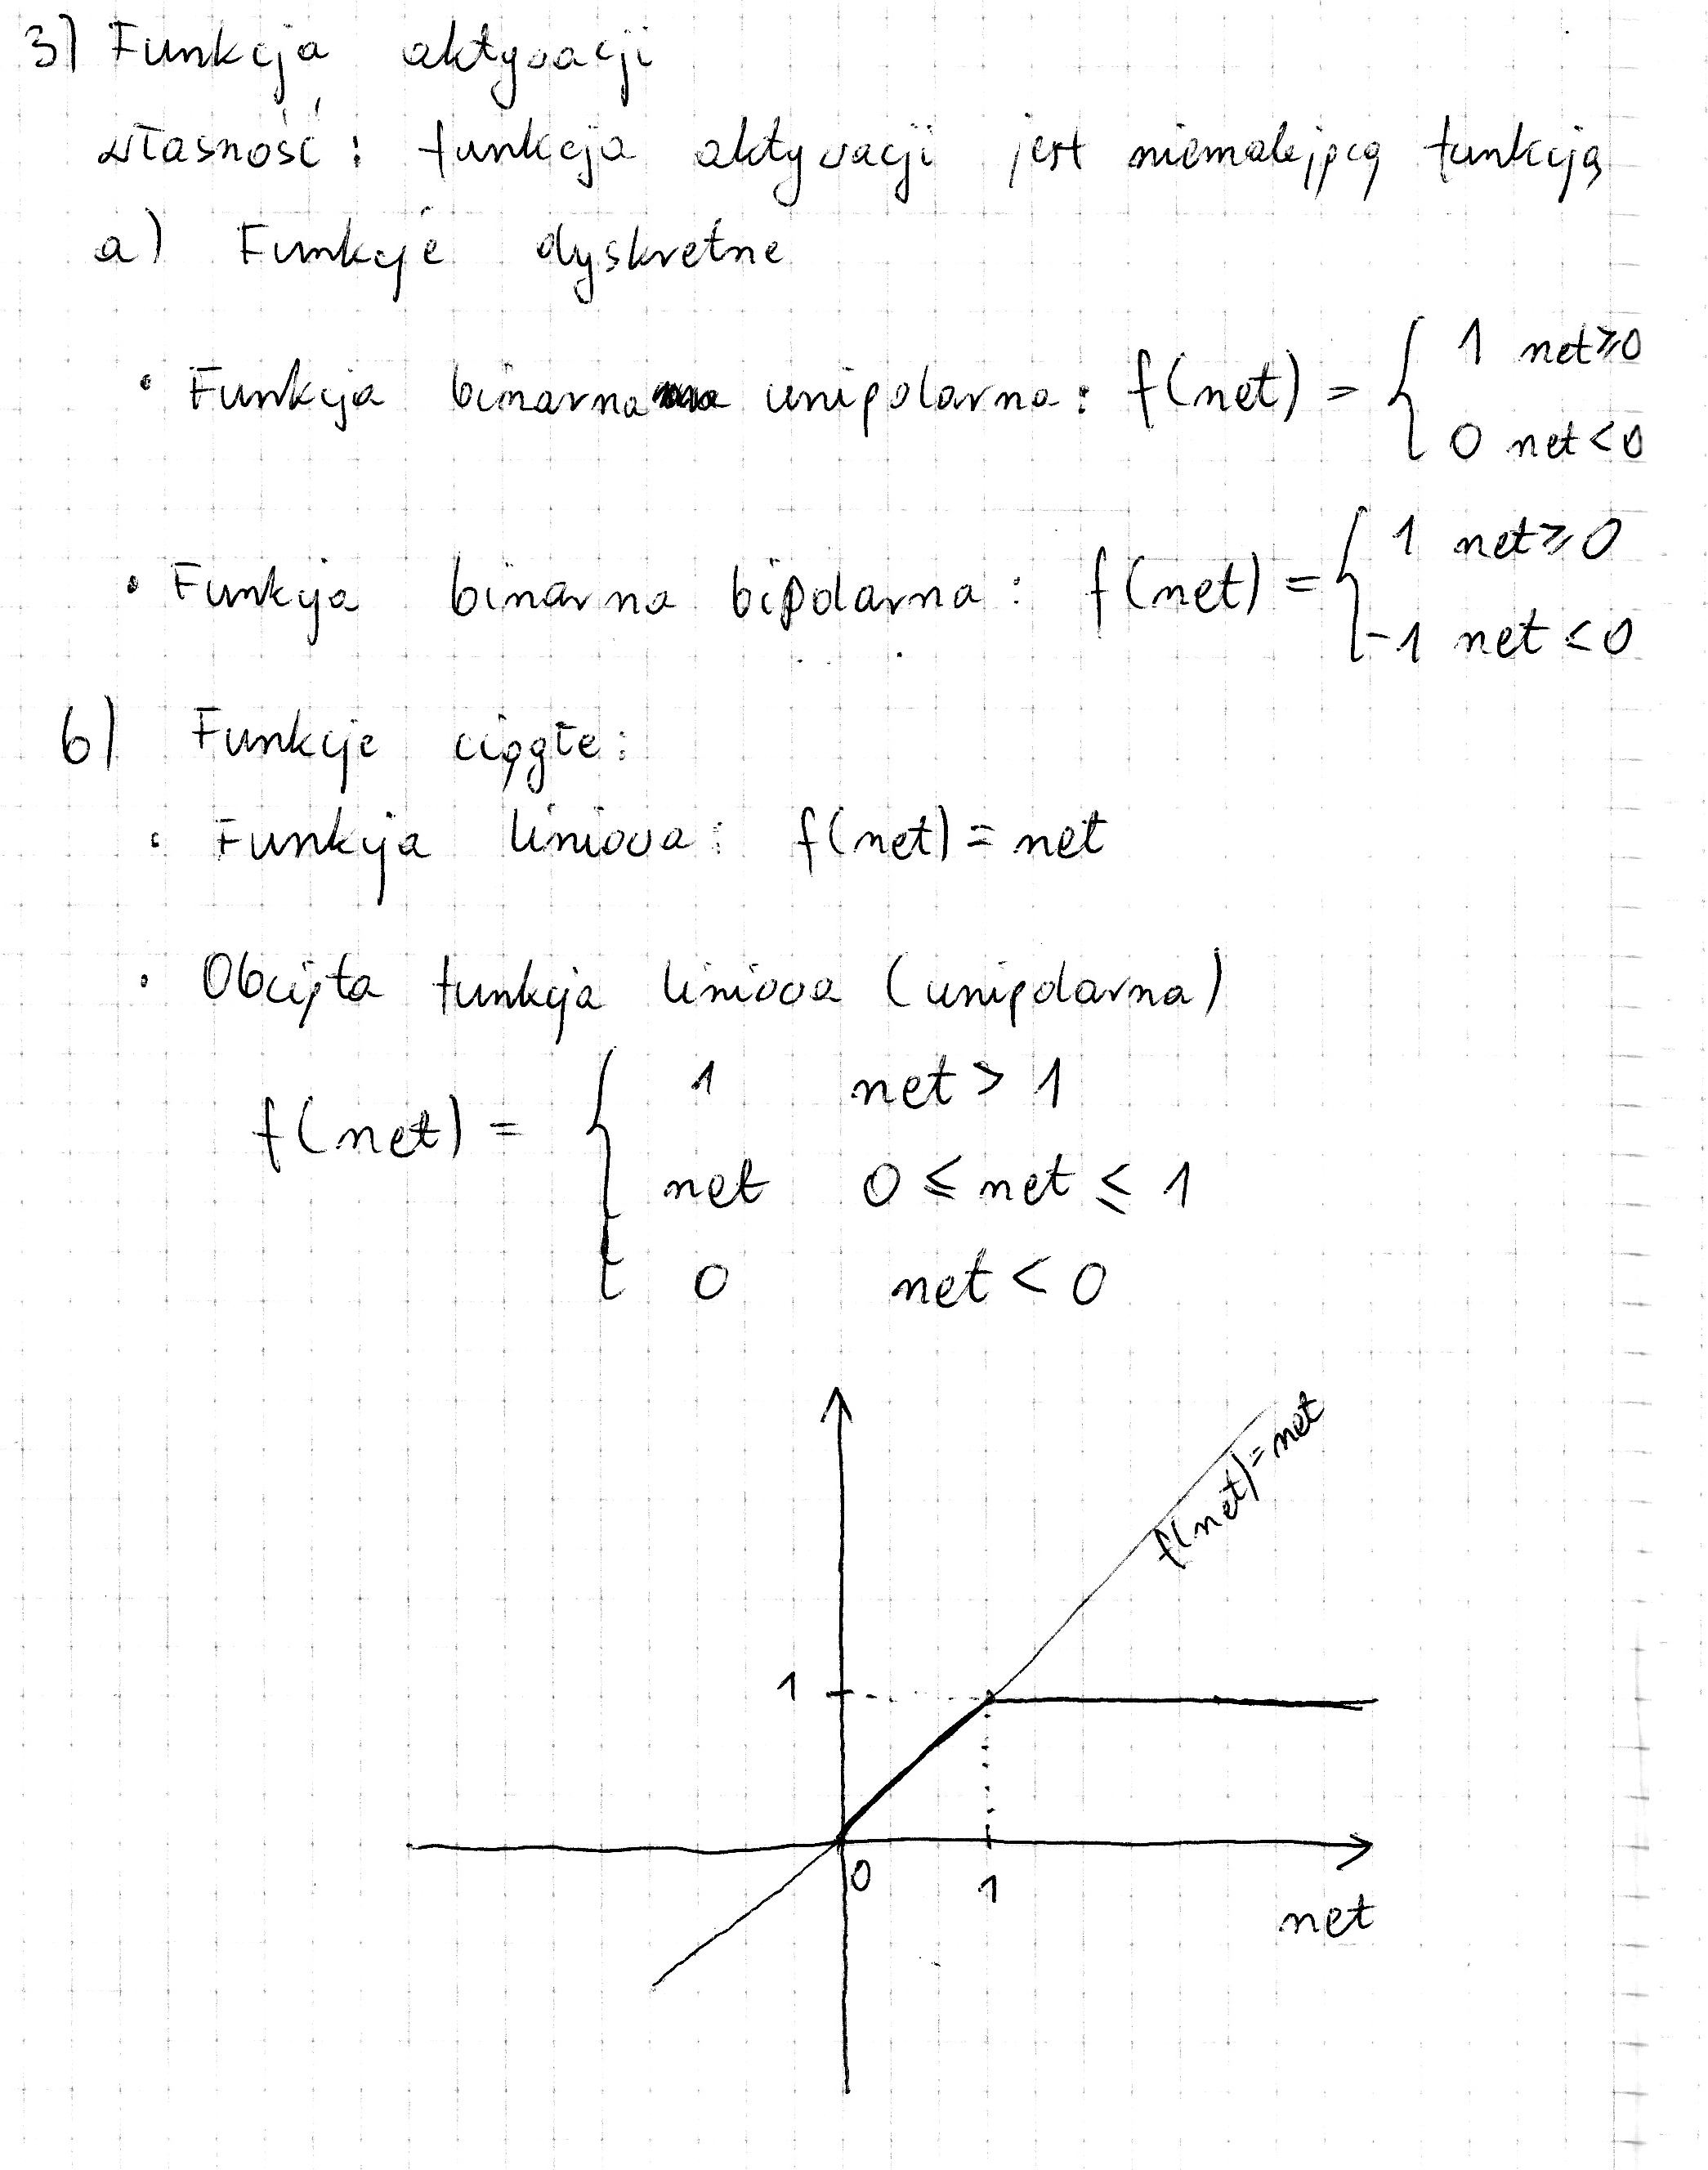 3) Funkcja aktywacji
własność: funkcja aktywacji jest niemalejącą funkcją
a) Funkcje dyskretne
• Funkcja binarna unipolarna: f(net) = { 1 net ≥ 0
0 net < 0
• Funkcja binarna bipolarna: f(net) = { 1 net ≥ 0
-1 net < 0
b) Funkcje ciągłe:
• Funkcja liniowa: f(net) = net
• Obcięta funkcja liniowa (unipolarna)
f(net) = { 1 net > 1
net 0 ≤ net ≤ 1
0 net < 0
f(net) = net
1
0
1
net